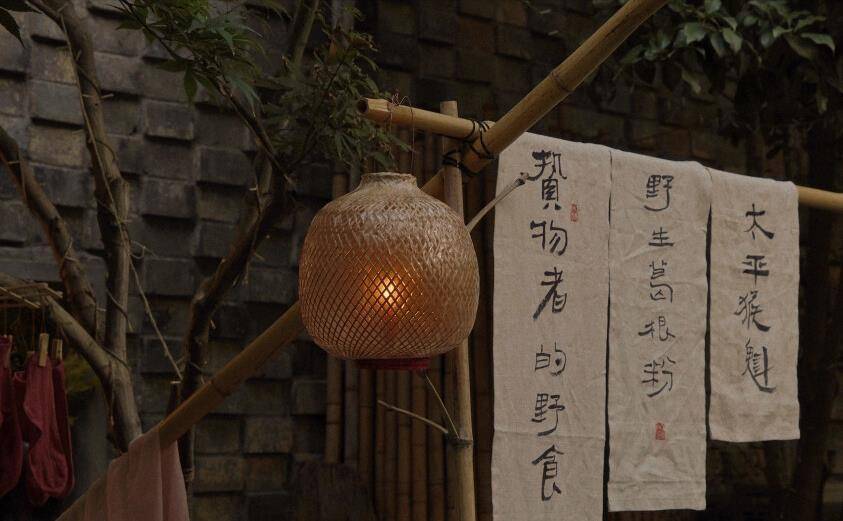 贄物者的野食
野生葛根粉
太平猴魁